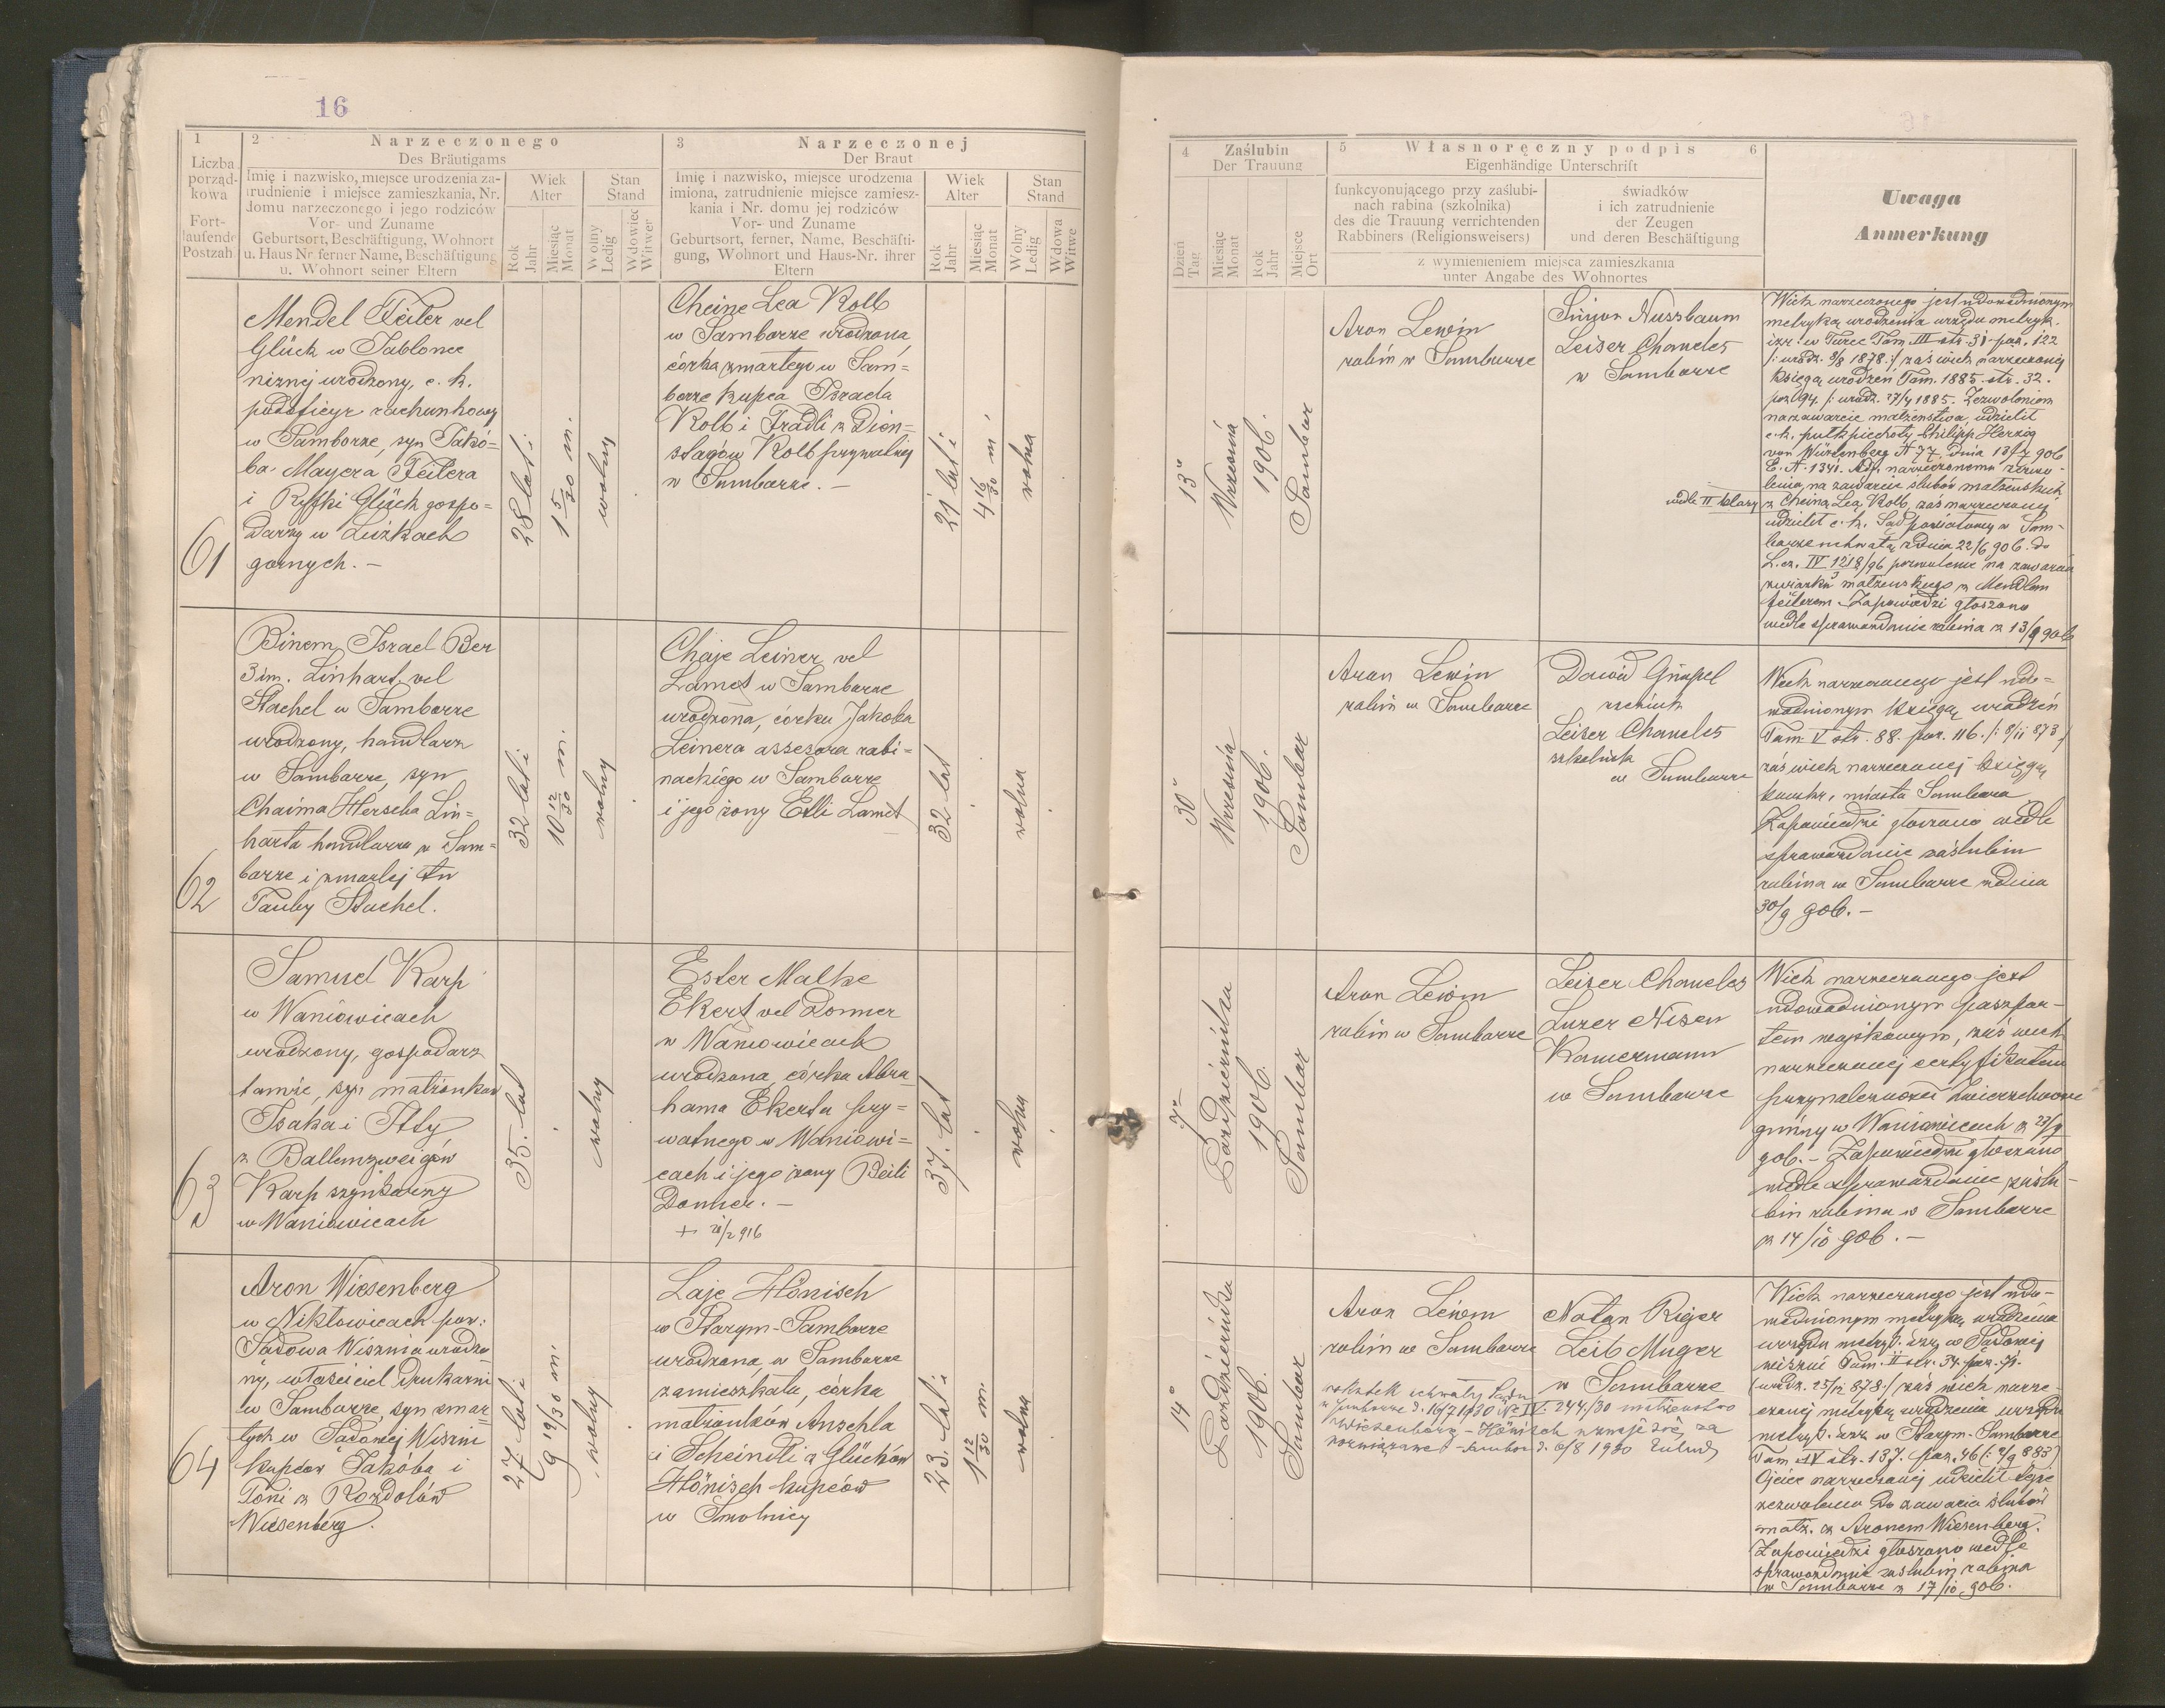 16
1
Liczba
porząd-
kowa
Fort-
laufende
Postzah
2
Narzeczonego
Des Bräutigams
Imię i nazwisko, miejsce urodzenia za-
trudnienie i miejsce zamieszkania, Nr.
domu narzeczonego i jego rodziców
Vor- und Zuname
Geburtsort, Beschäftigung, Wohnort
u. Haus Nr ferner Name, Beschäftigung
u. Wohnort seiner Eltern
Wiek
Alter
Rok
Jahr
Miesiąc
Monat
Stan
Stand
Wolny
Ledig
Wdowiec
Witwer
3
Narzeczonej
Der Braut
Imię i nazwisko, miejsce urodzenia
imiona, zatrudnienie miejsce zamiesz-
kania i Nr. domu jej rodziców
Vor- und Zuname
Geburtsort, ferner, Name, Beschäfti-
gung, Wohnort und Haus-Nr. ihrer
Eltern
Wiek
Alter
Rok
Jahr
Miesiąc
Monat
Stan
Stand
Wolny
Ledig
Wdowa
Witwe
4
Zaślubin
Der Trauung
Dzień
Tag
Miesiąc
Monat
Rok
Jahr
Miejsce
Ort
5
Własnoręczny podpis
6
Eigenhändige Unterschrift
funkcyonującego przy zaślubi-
nach rabina (szkolnika)
des die Trauung verrichtenden
Rabbiners (Religionsweisers)
świadków
i ich zatrudnienie
der Zeugen
und deren Beschäftigung
z wymienieniem miejsca zamieszkania
unter Angabe des Wohnortes
Uwaga
Anmerkung
61
Mendel Feiler vel
Glück w Jablonce
niżnej urodzony, c. k.
podoficyr rachunkowy
w Samborze, syn Jakó-
ba Mayera Feilera
i Ryfki Glück gospo-
darzy w Łużkach
górnych. —
28 lat i
1 5/30 m.
wolny
Cheine Lea Kolb
w Samborze urodzona
córka zmarłego w Sam=
borze kupca Izraela
Kolb i Fradli z Dien=
stagów Kolb prywatnej
w Samborze. —
21 lat i
4 16/30 m
wolna
13
Września
1906.
Sambor
Aron Lewin
rabin w Samborze
Simon Nussbaum
Leiser Chameles
w Samborze
Wiek narzeczonego jest udowodnionym
metryką urodzenia urzędu metryk.
izr. w Turce Tom III str. 31 poz. 122
/: urodz. 8/8 1878 :/ zaś wiek narzeczonej
Księgą urodzeń Tom. 1885. str. 32.
poz 94. /: urodz. 27/4 1885. Zezwoleniem
na zawarcie małżeństwa, udzielił
c. k. pułk piechoty Philipp Herzog
von Würtenberg N 77. dnia 13/7 906
E. N. 1341. Adj. narzeczonemu zezwo-
lenia na zawarcie ślubów małżeńskich
wedle II klasy z Cheiną Leą Kolb, zaś narzeczonej
udzielił c. k. Sąd powiatowy w Sam-
borze uchwałą z dnia 22/6 906. do
związku małżeńskiego z Mendlem
Feilerem. Zapowiedzi głoszono
wedle sprawozdania rabina z 13/9 906
62
Binem Israel Ber
3 im. Linhart vel
Stachel w Samborze
urodzony, handlarz
w Samborze, syn
Chaima Herscha Lin=
harta handlarza w Sam=
borze i zmarłej tu
Tauby Stachel.
32 lat i
10 12/30 m.
wolny
Chaje Leiner vel
Lamet w Samborze
urodzona, córka Jakoba
Leinera assesora rabi=
nackiego w Samborze
i jego żony Etli Lamet
32 lat
wolna
30
Września
1906.
Sambor
Aron Lewin
rabin w Samborze
Dawid Gimpel
Leiser Chameles
szkolnik
w Samborze
Wiek narzeczonego jest udo=
wodnionym księgą urodzeń
Tom V str. 88. poz. 116. /: 8/11 873/
zaś wiek narzeczonej księgą
miasta Sambora
Zapowiedzi głoszono wedle
sprawozdanie zaślubin
rabina w Samborze z dnia
30/9 906. —
63
Samuel Karp
w Waniowicach
urodzony, gospodarz
tamże, syn małżonków
Isaka i Itty
z Ballenzweigów
Karp szynkarzy
w Waniowicach
35. lat
wolny
Ester Malke
Ekert vel Donner
w Waniowicach
urodzona, córka Abra
hama Ekerta pry=
watnego w Waniowi=
cach i jego żony Beili
Donner. —
wolna
37. lat
7
Października
1906.
Sambor
Aron Lewin
rabin w Samborze
Leiser Chameles
Lazer Nisen
Kamermann
w Samborze
Wiek narzeczonego jest
udowodnionym paszpor-
tem wojskowym, zaś wiek
narzeczonej certyfikatem
przynależności Zwierzchności
gminy w Waniowicach z 23/9
906. — Zapowiedzi głoszono
wedle sprawozdanie zaślu-
bin rabina w Samborze
z 14/10 906. —
64
Aron Wiesenberg
w Nikłowicach pow:
Sądowa Wisznia urodzo
ny, właściciel drukarni
w Samborze, syn zmar
łych w Sądowej Wiszni
kupców Jakóba i
Toni z Rozdołów
Wiesenberg.
27 lat i
9 19/30 m.
wolny
Laje Hönisch
w Starym-Samborze
urodzona, w Samborze
zamieszkała, córka
małżonków Anschla
i Scheindli z Glücków
Hönisch kupców
w Smolnicy
23. lat i
1 12/30 m.
wolna
14
Października
1906.
Sambor
Aron Lewin
rabin w Samborze
Natan Rieger
Leib Muger
w Samborze
wskutek uchwały Sądu
w Samborze d. 16/7 1930 Nc IV. 244/30 małżeństwo
Wiesenberg - Hönisch uznaje się za
rozwiązane - Sambor d. 6/8 1930
Wiek narzeczonego jest udo-
wodnionym metryką urodzenia
urzędu metryk. izr. w Sądowej
wiszni Tom. II str. 34. poz. 71.
zaś wiek narze-
czonej metryką urodzenia urzędu
metryk. izr. w Starym-Samborze
Tom IV str. 137. poz. 46 (: 2/9 883)
Ojciec narzeczonej udzielił tejże
zezwolenia do zawarcia ślubów
małż. z Aronem Wiesenberg.
Zapowiedzi głoszono wedle
sprawozdanie zaślubin rabina
w Samborze z 17/10 906.